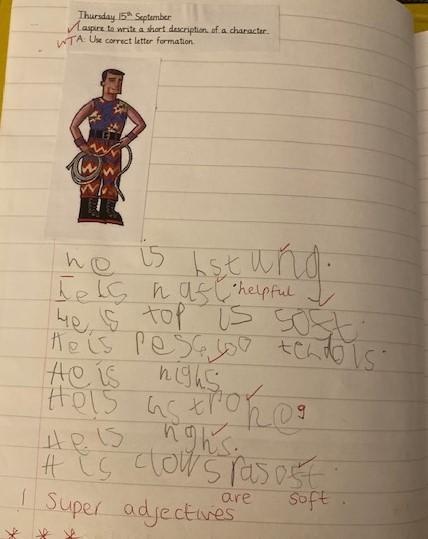 Thursday 15th September
I aspire to write a short description of a character.
WT A: Use correct letter formation.
he is hstung.
He is nasti. helpful
He is top is soft.
He is
He is nighs.
He is hstrong
He is nghs.
H is clows rasoft.
are soft.
! Super adjectives